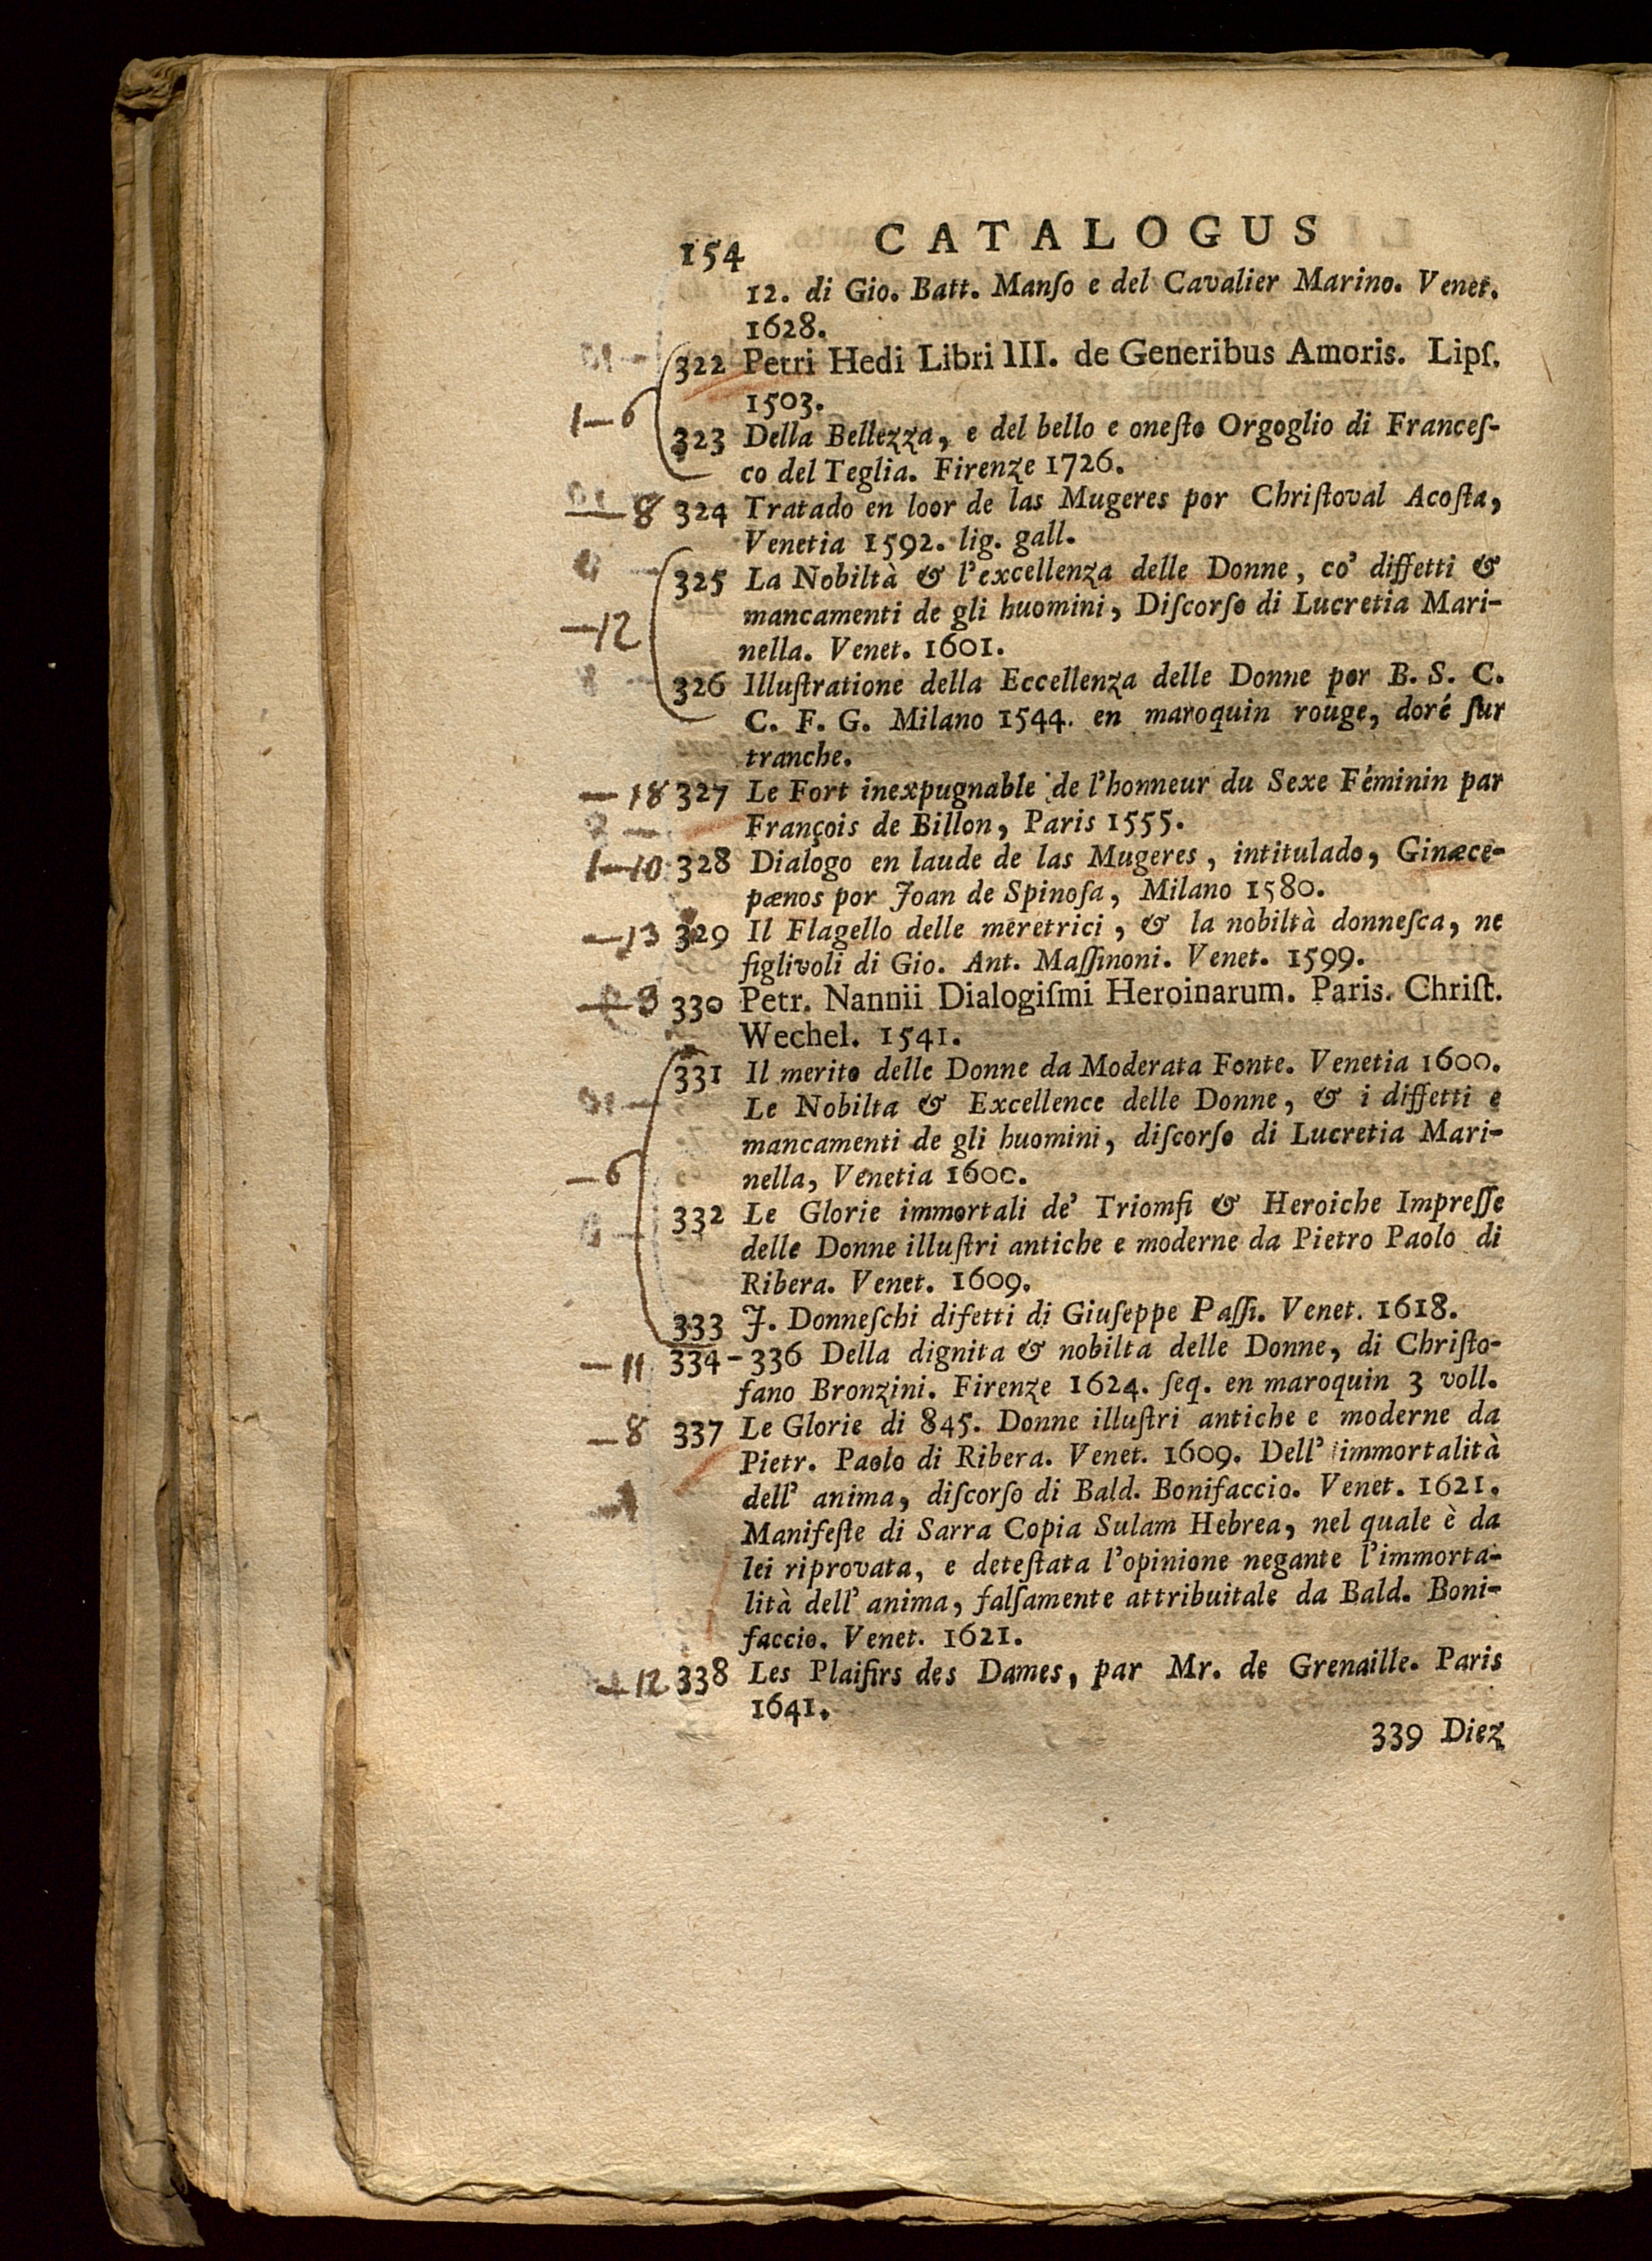 154 CATALOGUS
12. di Gio. Batt. Manſo e del Cavalier Marino. Venet.
1628.
322 Petri Hedi Libri III. de Generibus Amoris. Lipſ.
1503.
1—6
323 Della Bellezza, e del bello e oneſto Orgoglio di Franceſ-
co del Teglia. Firenze 1726.
—8 324 Tratado en loor de las Mugeres por Chriſtoval Acoſta,
Venetia 1592. lig. gall.
325 La Nobiltà & l'excellenza delle Donne, co' diffetti &
mancamenti de gli huomini, Diſcorſo di Lucretia Mari-
—12
nella. Venet. 1601.
326 Illuſtratione della Eccellenza delle Donne por B. S. C.
C. F. G. Milano 1544. en maroquin rouge, doré ſur
tranche.
—18 327 Le Fort inexpugnable de l'honneur du Sexe Féminin par
François de Billon, Paris 1555.
1—10 328 Dialogo en laude de las Mugeres, intitulado, Ginæce-
pænos por Joan de Spinoſa, Milano 1580.
—13 329 Il Flagello delle meretrici, & la nobiltà donneſca, ne
figlivoli di Gio. Ant. Maſſinoni. Venet. 1599.
330 Petr. Nannii Dialogiſmi Heroinarum. Paris. Chriſt.
Wechel. 1541.
331 Il merito delle Donne da Moderata Fonte. Venetia 1600.
Le Nobilta & Excellence delle Donne, & i diffetti e
mancamenti de gli huomini, diſcorſo di Lucretia Mari-
—6
nella, Venetia 1600.
332 Le Glorie immortali de' Triomfi & Heroiche Impreſſe
delle Donne illuſtri antiche e moderne da Pietro Paolo di
Ribera. Venet. 1609.
333 J. Donneſchi difetti di Giuſeppe Paſſi. Venet. 1618.
—11 334-336 Della dignita & nobilta delle Donne, di Chriſto-
fano Bronzini. Firenze 1624. ſeq. en maroquin 3 voll.
—8 337 Le Glorie di 845. Donne illuſtri antiche e moderne da
Pietr. Paolo di Ribera. Venet. 1609. Dell' immortalità
dell' anima, diſcorſo di Bald. Bonifaccio. Venet. 1621.
Manifeſte di Sarra Copia Sulam Hebrea, nel quale è da
lei riprovata, e deteſtata l'opinione negante l'immorta-
lità dell' anima, falſamente attribuitale da Bald. Boni-
faccio. Venet. 1621.
—12 338 Les Plaiſirs des Dames, par Mr. de Grenaille. Paris
1641.
339 Diez